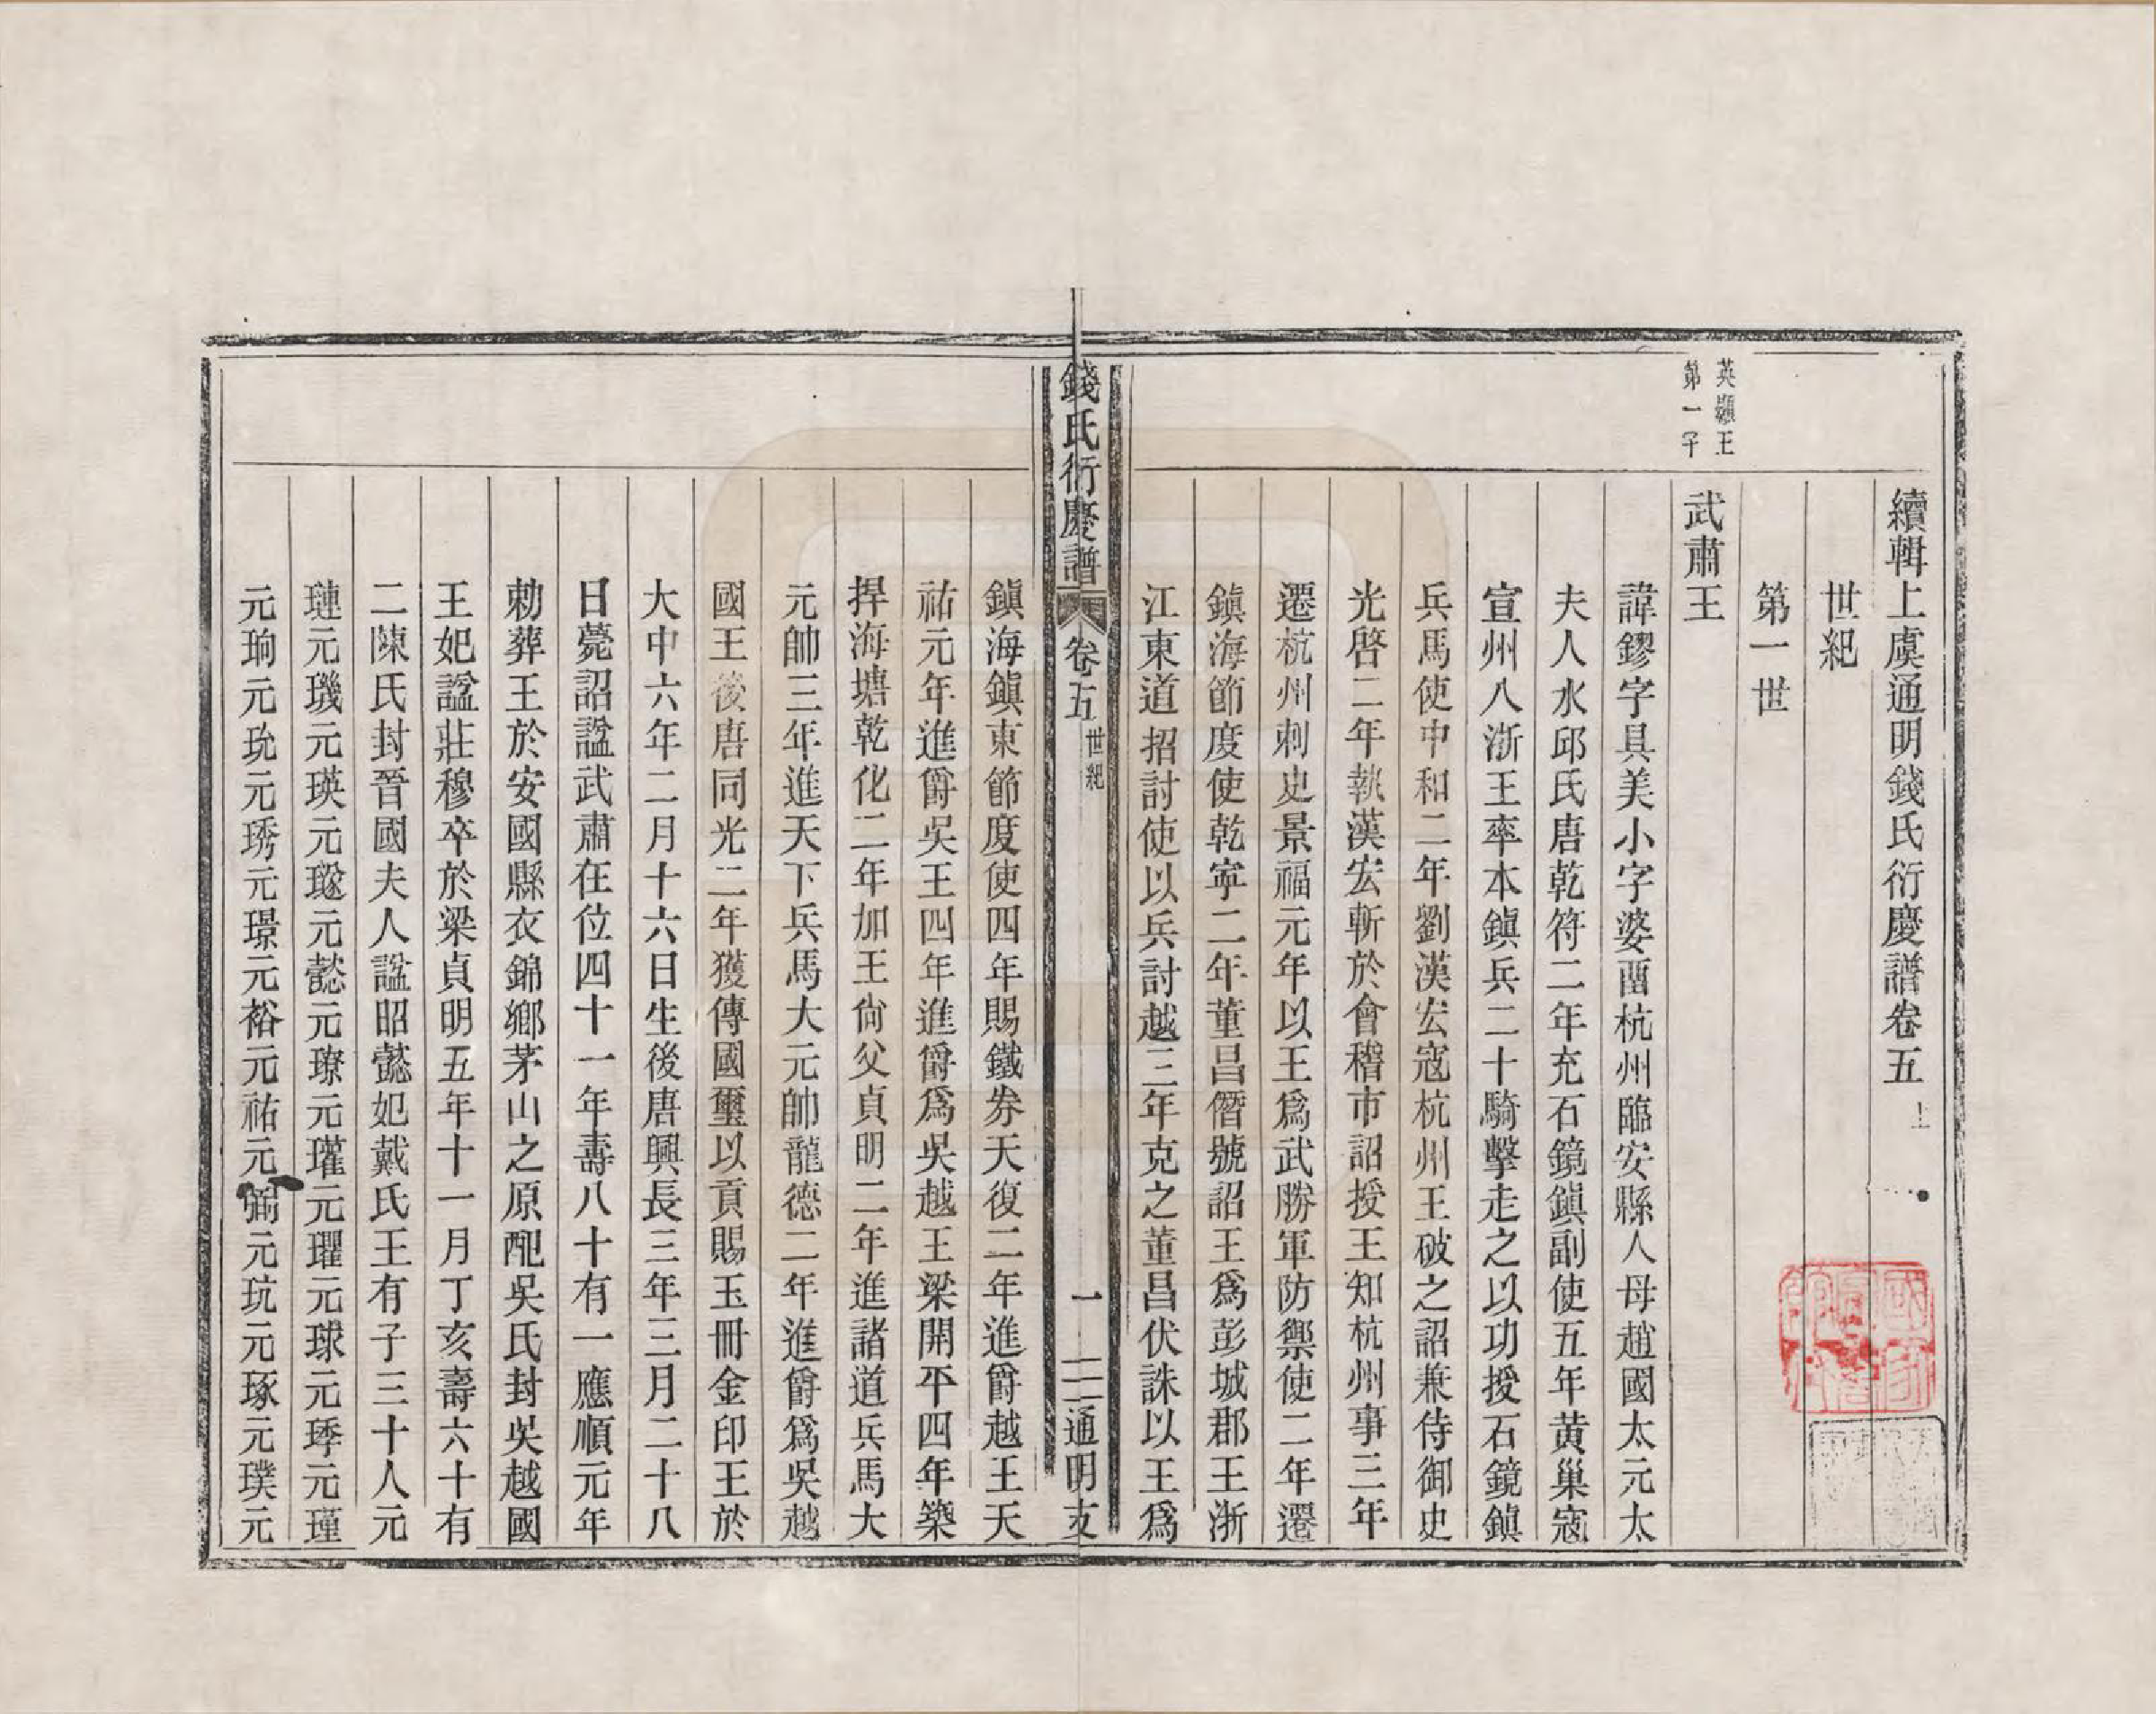 續輯上虞通明錢氏衍慶譜卷五上
世紀
第一世
英顯王
第一子
武肅王
諱鏐字具美小字婆畱杭州臨安縣人母趙國太元太
夫人水邱氏唐乾符二年充石鏡鎮副使五年黄巢寇
宣州八浙王率本鎮兵二十騎擊走之以功授石鏡鎮
兵馬使中和二年劉漢宏寇杭州王破之詔兼侍御史
光啓二年執漢宏斬於會稽市詔授王知杭州事三年
遷杭州刺史景福元年以王爲武勝軍防禦使二年遷
鎮海節度使乾寧二年董昌僭號詔王爲彭城郡王浙
江東道招討使以兵討越三年克之董昌伏誅以王爲
錢氏衍慶譜
卷五
世紀
一
通明支
鎮海鎮東節度使四年賜鐵券天復二年進爵越王天
祐元年進爵吳王四年進爵爲吳越王梁開平四年築
捍海塘乾化二年加王尙父貞明二年進諸道兵馬大
元帥三年進天下兵馬大元帥龍德二年進爵爲吳越
國王後唐同光二年獲傳國璽以貢賜玉冊金印王於
大中六年二月十六日生後唐興長三年三月二十八
日薨詔諡武肅在位四十一年壽八十有一應順元年
勅葬王於安國縣衣錦鄉茅山之原配吳氏封吳越國
王妃諡莊穆卒於梁貞明五年十一月丁亥壽六十有
二陳氏封晉國夫人諡昭懿妃戴氏王有子三十八元
璉元璣元瑛元璲元懿元璙元瓘元㻿元球元㻎元瑾
元珦元珫元琇元璟元裕元祐元元㼁元琢元璞元